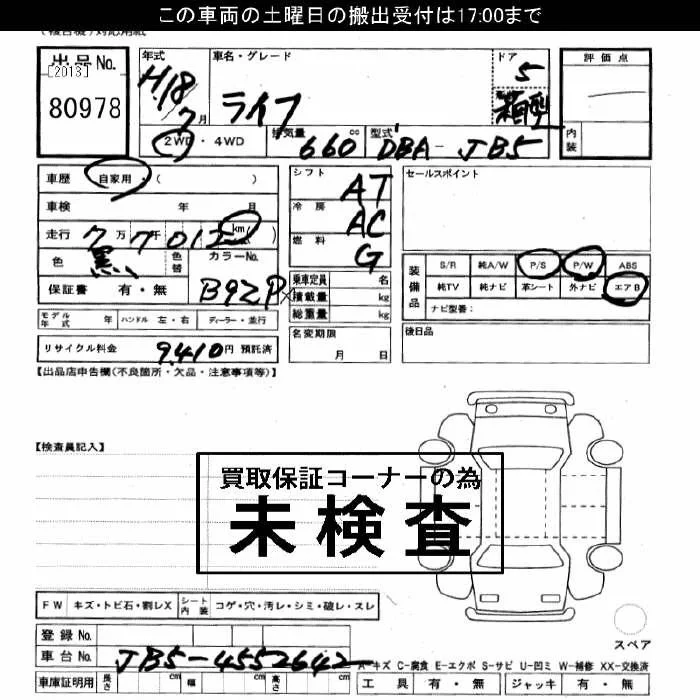 この車両の土曜日の搬出受付は17:00まで
出品No.
[2013]
80978
年式
H.18
7月
車名・グレード
ライフ
ドア
5
箱型
評価点
内装
2WD・4WD
排気量
660 cc
型式
DBA-JB5
車歴 自家用 ( )
車検 年 月
走行 7万7千01 km
色 黒
色替
カラーNo.
B92P
保証書 有・無
シフト AT
冷房 AC
燃料 G
乗車定員 名
積載量 kg
総重量 kg
名変期限
月 日
セールスポイント
装備品
S/R 純A/W P/S P/W ABS
純TV 純ナビ 革シート 外ナビ エアB
ナビ型番:
後日品
モデル年式 年 ハンドル 左・右 ディーラー・並行
リサイクル料金 9,410円 預託済
【出品店申告欄(不良箇所・欠品・注意事項等)】
【検査員記入】
買取保証コーナーの為
未検査
FW キズ・トビ石・割レX シート内装 コゲ・穴・汚レ・シミ・破レ・スレ
スペア
登録No.
車台No. JB5-4552642
A-キズ C-腐食 E-エクボ S-サビ U-凹ミ W-補修 XX-交換済
車庫証明用 長さ cm 幅 cm 高さ cm
工具 有・無 ジャッキ 有・無